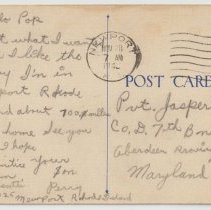 lo Pop
t what I wan
w I like the
y I'm in
port Rhode
nd about 700, miles
home See you
I hope
ntice yours
Son
Perry
Newport Rhode Island
NEWPORT
NOV 28
7 AM
POST CARD
Pvt. Jasper
Co, D, 7th Bn
Aberdeen Provin
Maryland